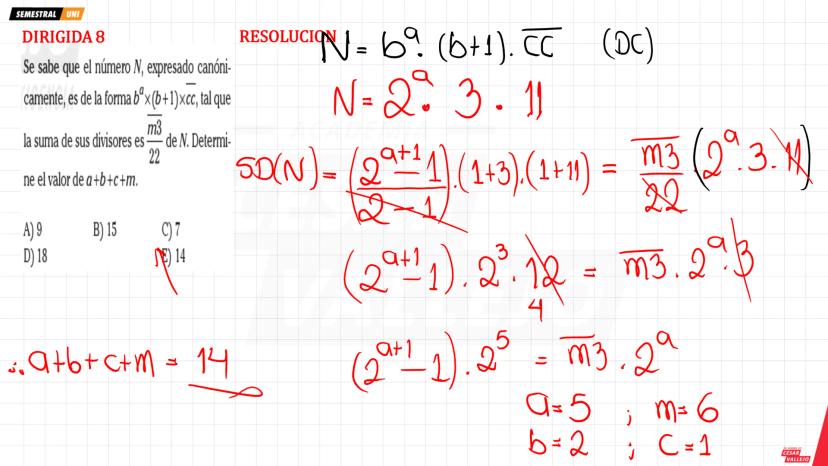 SEMESTRAL UNI
DIRIGIDA 8
Se sabe que el número N, expresado canóni-
camente, es de la forma bᵃ×(b+1)×c̅c̅, tal que
la suma de sus divisores es m̅3̅/22 de N. Determi-
ne el valor de a+b+c+m.
A) 9 B) 15 C) 7
D) 18 E) 14
RESOLUCION
N = bᵃ · (b+1) · c̅c̅ (DC)
N = 2ᵃ · 3 · 11
SD(N) = ((2ᵃ⁺¹ − 1)/(2 − 1)) · (1+3) · (1+11) = m̅3̅/22 (2ᵃ · 3 · 11)
(2ᵃ⁺¹ − 1) · 2³ · 12 = m̅3̅ · 2ᵃ · 3
4
(2ᵃ⁺¹ − 1) · 2⁵ = m̅3̅ · 2ᵃ
a = 5 ; m = 6
b = 2 ; c = 1
∴ a+b+c+m = 14
CESAR
VALLEJO